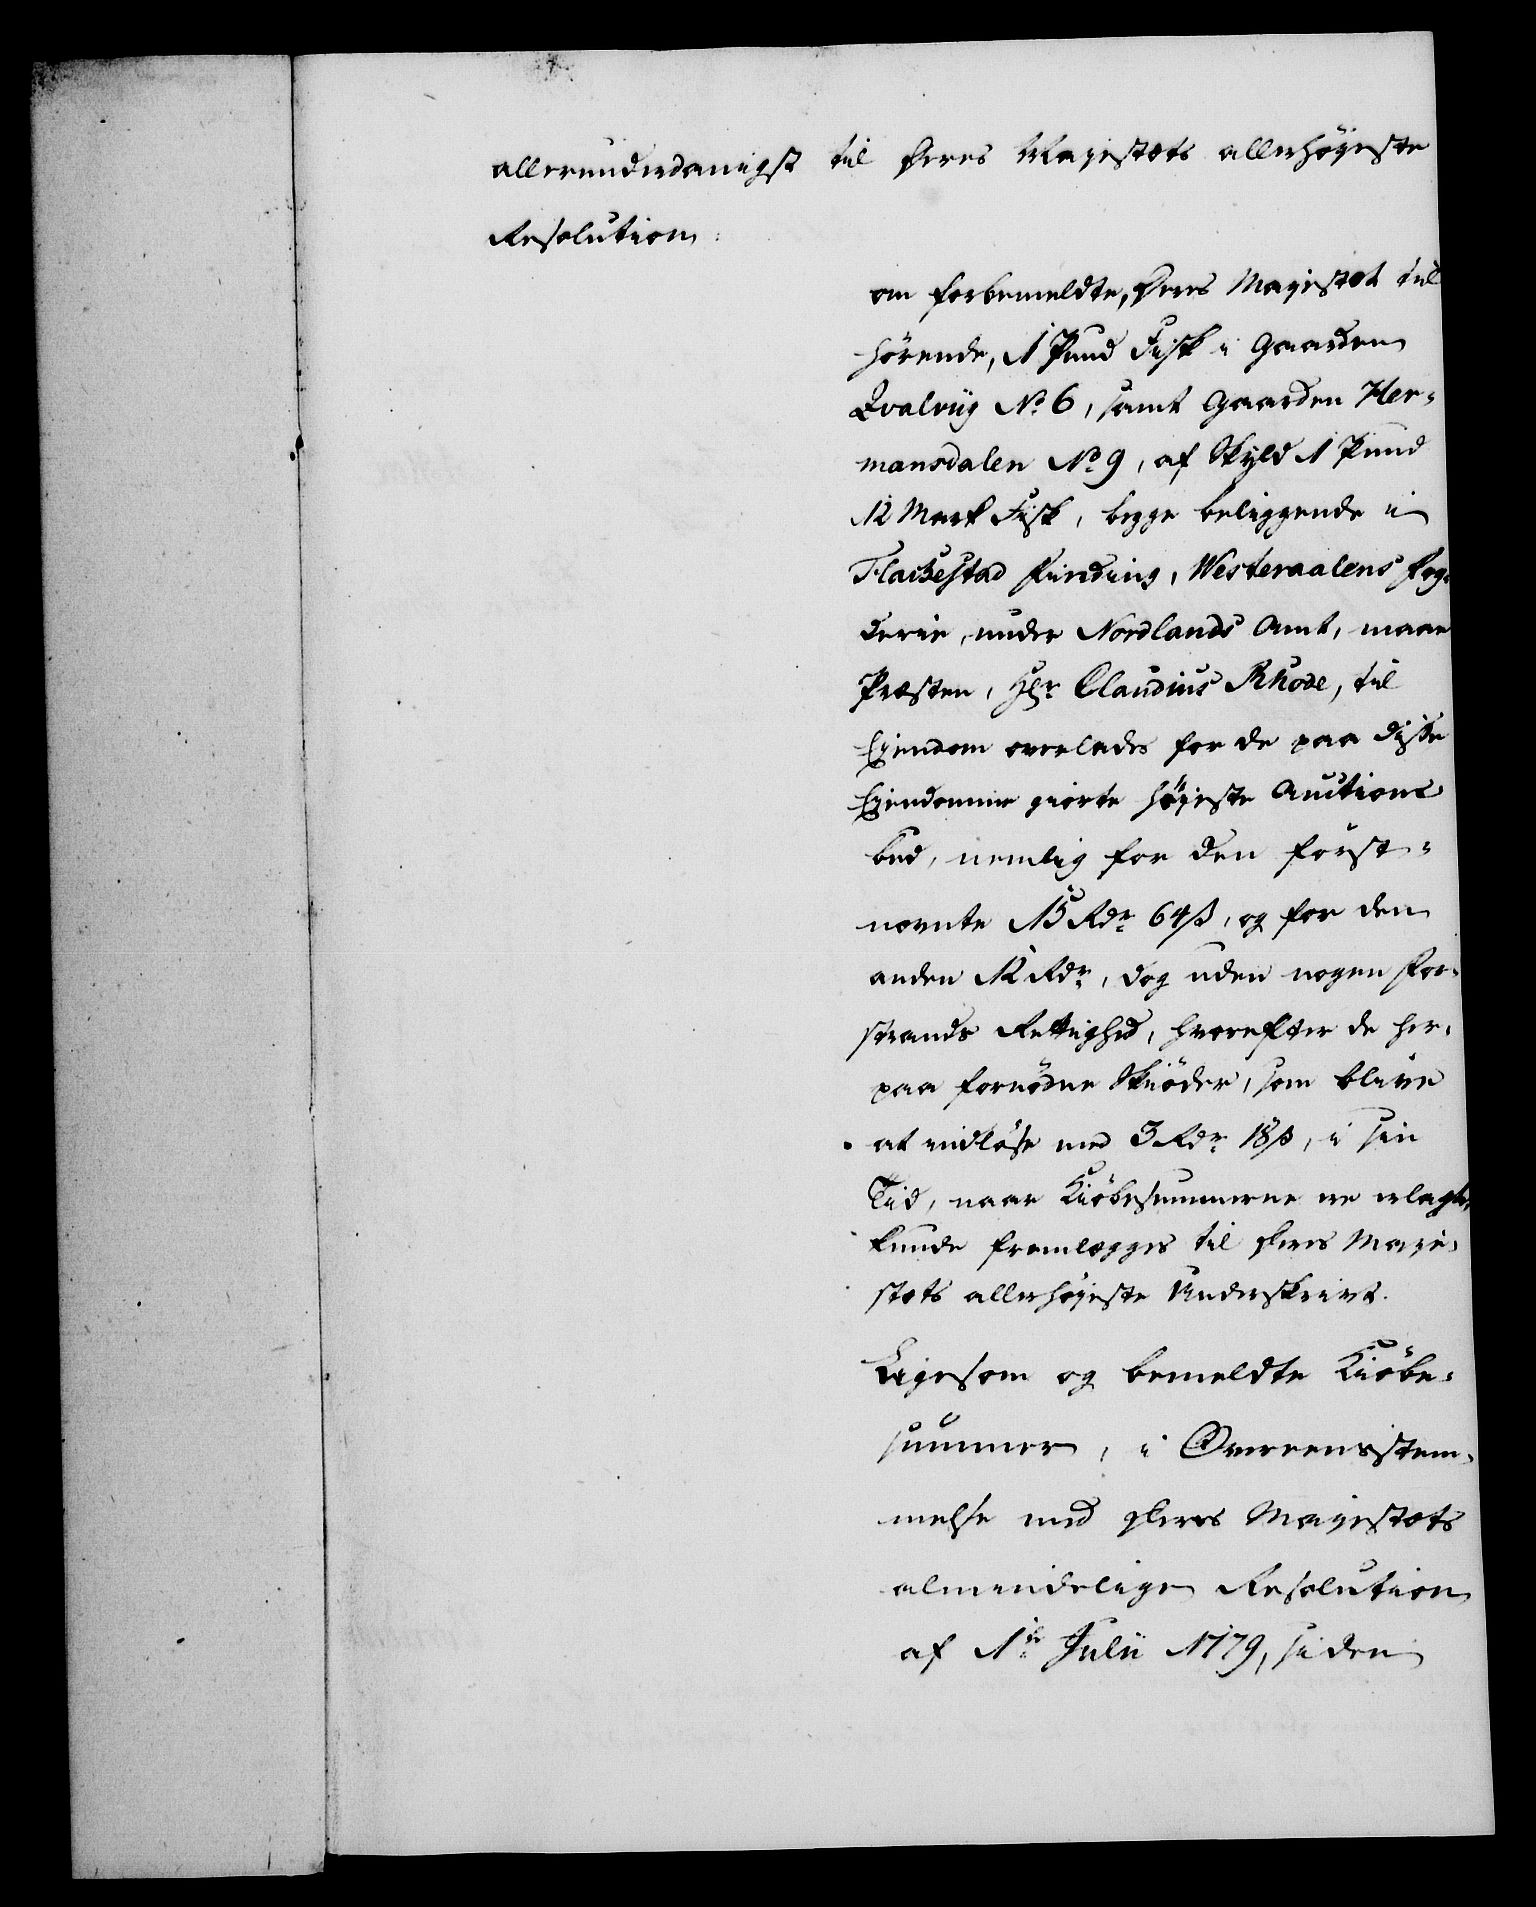 allerunderdanigst til Deres Majestæts allerhøyeste
Resolution:
om forbemeldte, Deres Majestæt til
hörende, 1 Pund Fisk i Gaarden
Qvalviig No. 6, samt Gaarden Her-
mansdalen No. 9, af Skyld 1 Pund
12 Mark Fisk, begge beliggende i
Flackestad Finding, Westeraalens Fog-
derie, under Nordlands Amt, maae
Præsten, Hr. Claudius Rhode, til
Ejendom overlades for de paa disse
Ejendomme giorte høyeste Auctions
bud, nemlig for den først-
nævnte 15 Rdr. 64 ß, og for den
anden 12 Rdr., dog uden nogen For-
strands Rettighed, hvorefter de her-
paa fornödne Skiöder, som blive
at indløse med 3 Rdr. 18 ß, i sin
Tid, naar Kiöbesummerne ere erlagte,
kunde fremlægges til Deres Maje-
stæts allerhøyeste Underskrivt.
Ligesom og bemeldte Kiöbe-
summer, i Overeensstem-
melse med Deres Majestæts
almindelige Resolution
af 1te Julii 1779, siden